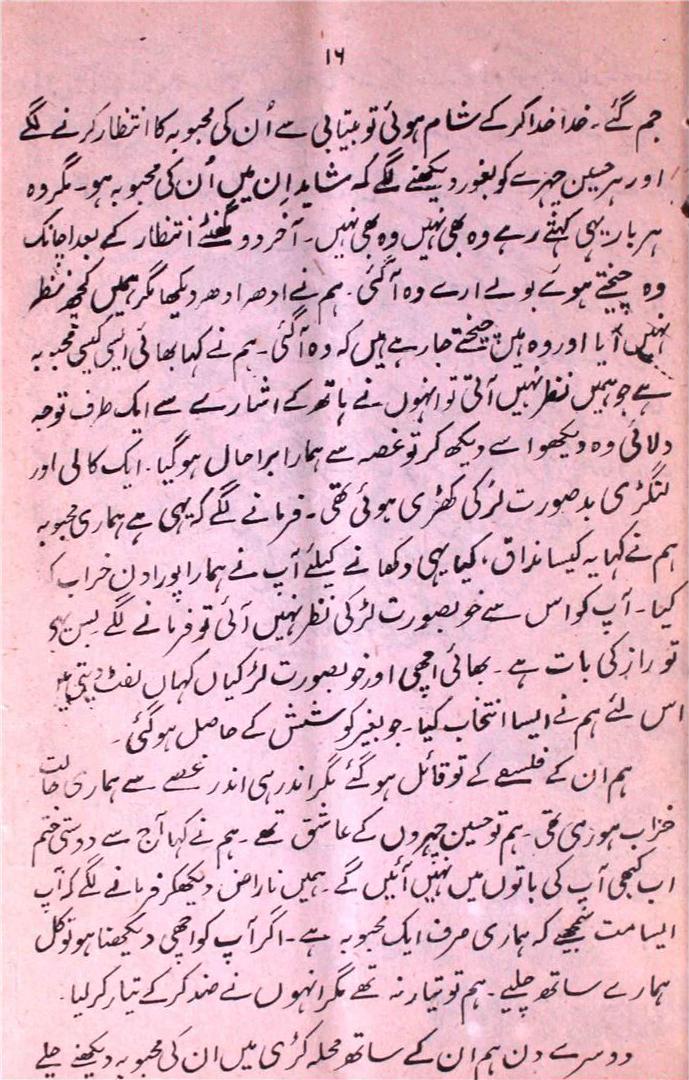 ۱۶
جم گئے۔ خدا خدا کر کے شام ہوئی تو بیتابی سے اُن کی محبوبہ کا انتظار کرنے لگے
اور ہر حسین چہرے کو بغور دیکھنے لگے کہ شاید اِن میں اُن کی محبوبہ ہو۔ مگر وہ
ہر بار یہی کہتے رہے وہ بھی نہیں وہ بھی نہیں۔ آخر دو گھنٹے انتظار کے بعد اچانک
وہ چیختے ہوئے بولے ارے وہ آ گئی۔ ہم نے ادھر ادھر دیکھا مگر ہمیں کچھ نظر
نہیں آیا اور وہ ہیں چیختے جا رہے ہیں کہ وہ آ گئی۔ ہم نے کہا بھائی ایسی کیسی محبوبہ
ہے جو ہمیں نظر نہیں آتی تو انہوں نے ہاتھ کے اشارے سے ایک طرف توجہ
دلائی وہ دیکھو اسے دیکھ کر تو غصہ سے ہمارا برا حال ہو گیا۔ ایک کالی اور
لنگڑی بدصورت لڑکی کھڑی ہوئی تھی۔ فرمانے لگے کہ یہی ہے ہماری محبوبہ
ہم نے کہا یہ کیسا مذاق، کیا یہی دکھانے کیلئے آپ نے ہمارا پورا دن خراب
کیا۔ آپ کو اس سے خوبصورت لڑکی نظر نہیں آئی تو فرمانے لگے بس یہی
تو راز کی بات ہے۔ بھائی اچھی اور خوبصورت لڑکیاں کہاں لفٹ دیتی ہیں
اس لئے ہم نے ایسا انتخاب کیا۔ جو بغیر کوشش کے حاصل ہو گئی۔
ہم ان کے فلسفے کے تو قائل ہو گئے مگر اندر ہی اندر غصے سے ہماری حالت
خراب ہو رہی تھی۔ ہم تو حسین چہروں کے عاشق تھے۔ ہم نے کہا آج سے دوستی ختم
اب کبھی آپ کی باتوں میں نہیں آئیں گے۔ ہمیں ناراض دیکھکر فرمانے لگے کہ آپ
ایسا مت سمجھیے کہ ہماری صرف ایک محبوبہ ہے۔ اگر آپ کو اچھی دیکھنا ہو تو کل
ہمارے ساتھ چلیے۔ ہم تو تیار نہ تھے مگر انہوں نے ضد کر کے تیار کر لیا۔
دوسرے دن ہم ان کے ساتھ محلہ کڑی میں ان کی محبوبہ دیکھنے چلے